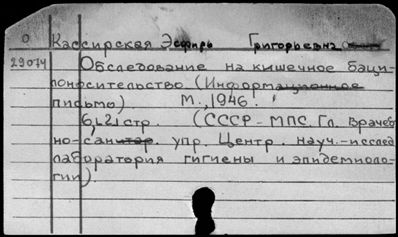 О Кассирская Эсфирь Григорьевна
29074 Обследование на кишечное баци-
лоносительство (Информационное
письмо). М., 1946.
6,21 стр. (СССР - МПС. Гл. Врачеб-
но-санитар. упр. Центр. науч.-исслед
лаборатория гигиены и эпидемиоло-
гии)